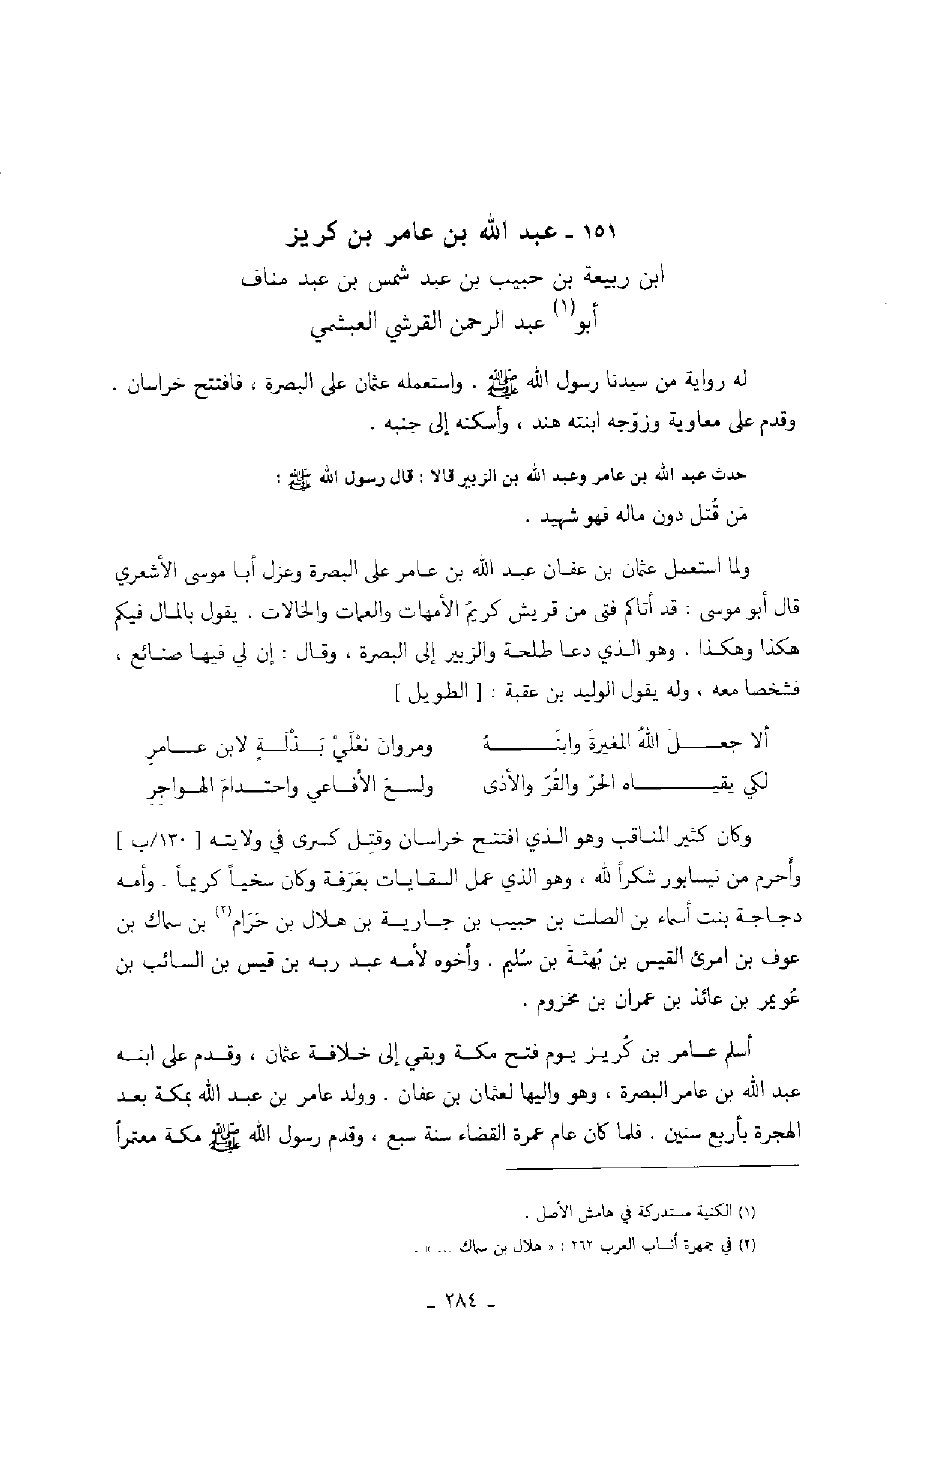 ١٥١ - عبد الله بن عامر بن كريز
ابن ربيعة بن حبيب بن عبد شمس بن عبد مناف
أبو(١) عبد الرحمن القرشي العبشمي
له رواية من سيدنا رسول الله ﷺ . واستعمله عثمان على البصرة ، فافتتح خراسان .
وقدم على معاوية وزوّجه ابنته هند ، وأسكنه إلى جنبه .
حدث عبد الله بن عامر وعبد الله بن الزبير قالا : قال رسول الله ﷺ :
مَن قُتل دون ماله فهو شهيد .
ولما استعمل عثمان بن عفان عبد الله بن عامر على البصرة وعزل أبا موسى الأشعري
قال أبو موسى : قد أتاكم فتى من قريش كريمُ الأمهات والعمات والخالات . يقول بالمال فيكم
هكذا وهكذا . وهو الذي دعا طلحة والزبير إلى البصرة ، وقال : إن لي فيها صنائع ،
فشخصا معه ، وله يقول الوليد بن عقبة : [ الطويل ]
ألا جعلَ اللهُ المغيرةَ وابنَهُ ومروانَ نعْلَيْ بَذْلَةٍ لابن عامرِ
لكي يقياه الحرّ والقُرّ والأذى ولسعَ الأفاعي واحتدامَ الهواجر
وكان كثير المناقب وهو الذي افتتح خراسان وقتل كسرى في ولايته [ ١٣٠/ب ]
وأحرم من نيسابور شكراً لله ، وهو الذي عمل السقايات بعَرَفة وكان سخياً كريماً . وأمه
دجاجة بنت أسماء بن الصلت بن حبيب بن جارية بن هلال بن حَزام(٢) بن سماك بن
عوف بن امرئ القيس بن بُهثة بن سُليم . وأخوه لأمه عبد ربه بن قيس بن السائب بن
عُويمر بن عائذ بن عمران بن مخزوم .
أسلم عامر بن كُريز يوم فتح مكة وبقي إلى خلافة عثمان ، وقدم على ابنه
عبد الله بن عامر البصرة ، وهو واليها لعثمان بن عفان . وولد عامر بن عبد الله بمكة بعد
الهجرة بأربع سنين . فلما كان عام عمرة القضاء سنة سبع ، وقدم رسول الله ﷺ مكة معتمراً
(١) الكنية مستدركة في هامش الأصل .
(٢) في جمهرة أنساب العرب ٢٦٢ : « هلال بن سماك ... » .
- ٢٨٤ -